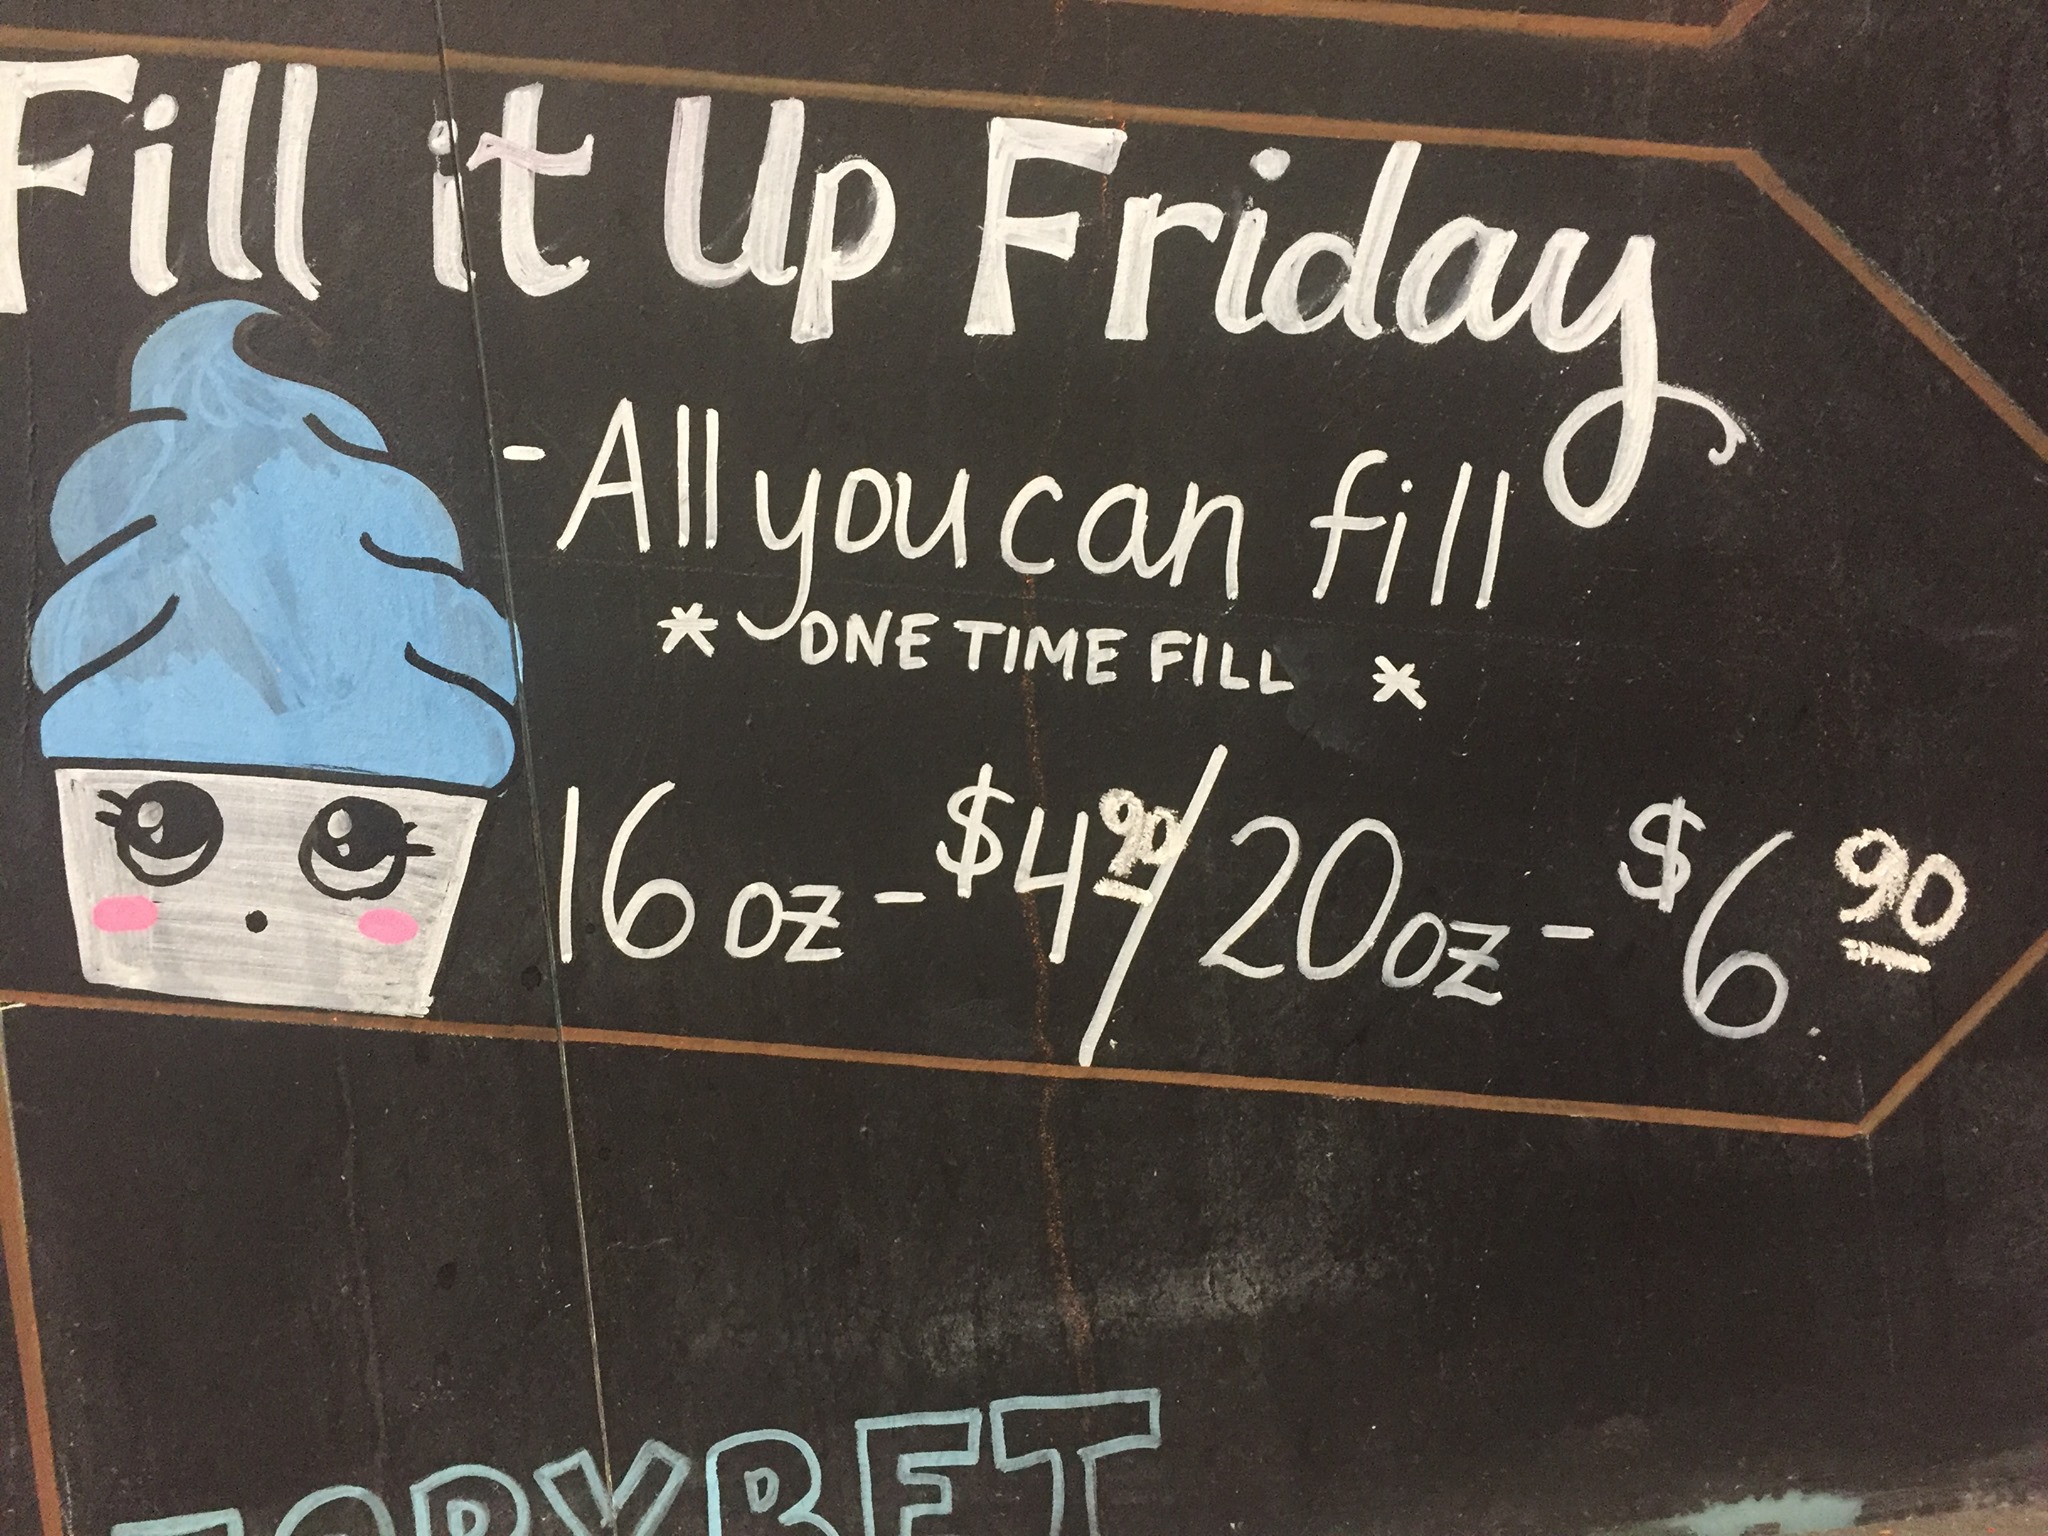 Fill it Up Friday
- All you can fill
* ONE TIME FILL *
16 oz - $4 90 / 20 oz - $6 90